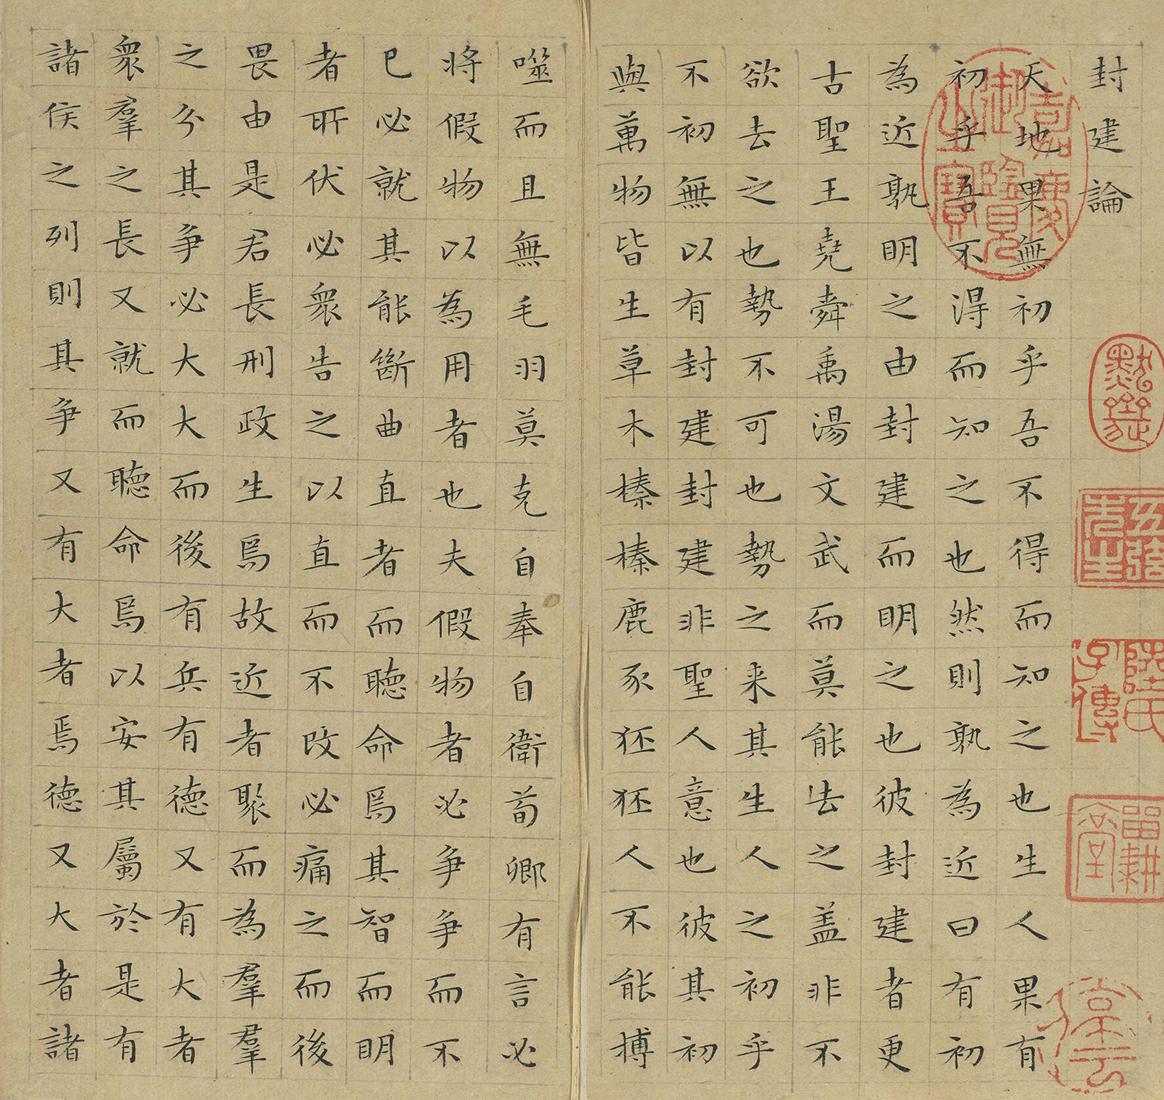 封建論
天地果無初乎吾不得而知之也生人果有
初乎吾不得而知之也然則孰為近曰有初
為近孰明之由封建而明之也彼封建者更
古聖王堯舜禹湯文武而莫能去之盖非不
欲去之也勢不可也勢之来其生人之初乎
不初無以有封建封建非聖人意也彼其初
與萬物皆生草木榛榛鹿豕狉狉人不能搏
噬而且無毛羽莫克自奉自衛荀卿有言必
將假物以為用者也夫假物者必争争而不
已必就其能斷曲直者而聽命焉其智而明
者所伏必衆告之以直而不改必痛之而後
畏由是君長刑政生焉故近者聚而為羣羣
之分其争必大大而後有兵有德又有大者
衆羣之長又就而聽命焉以安其屬於是有
諸侯之列則其争又有大者焉德又大者諸
嘉慶御覽之寶
陸氏子傳